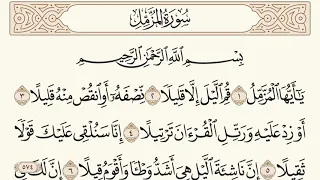 سُورَةُ المُزَّمِّلِ
بِسْمِ اللَّهِ الرَّحْمَٰنِ الرَّحِيمِ
يَٰٓأَيُّهَا ٱلْمُزَّمِّلُ ١ قُمِ ٱلَّيْلَ إِلَّا قَلِيلًا ٢ نِّصْفَهُۥٓ أَوِ ٱنقُصْ مِنْهُ قَلِيلًا ٣
أَوْ زِدْ عَلَيْهِ وَرَتِّلِ ٱلْقُرْءَانَ تَرْتِيلًا ٤ إِنَّا سَنُلْقِى عَلَيْكَ قَوْلًا
ثَقِيلًا ٥ إِنَّ نَاشِئَةَ ٱلَّيْلِ هِىَ أَشَدُّ وَطْـًٔا وَأَقْوَمُ قِيلًا ٦ إِنَّ لَكَ فِى